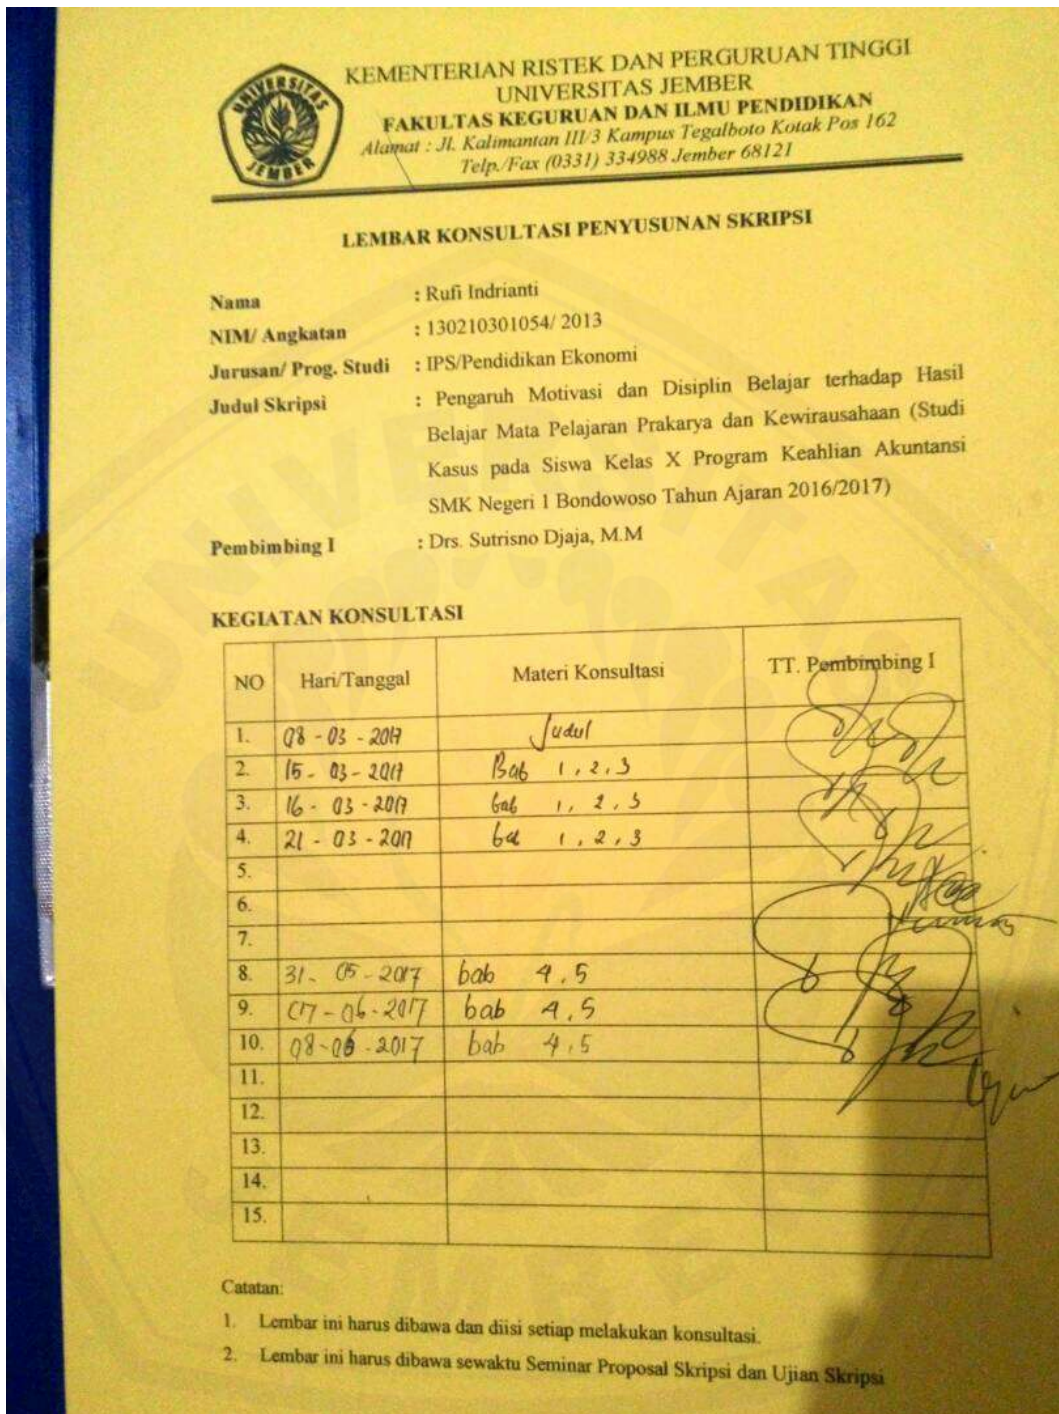 KEMENTERIAN RISTEK DAN PERGURUAN TINGGI
UNIVERSITAS JEMBER
FAKULTAS KEGURUAN DAN ILMU PENDIDIKAN
Alamat : Jl. Kalimantan III/3 Kampus Tegalboto Kotak Pos 162
Telp./Fax (0331) 334988 Jember 68121
UNIVERSITAS
JEMBER
LEMBAR KONSULTASI PENYUSUNAN SKRIPSI
Nama : Rufi Indrianti
NIM/ Angkatan : 130210301054/ 2013
Jurusan/ Prog. Studi : IPS/Pendidikan Ekonomi
Judul Skripsi : Pengaruh Motivasi dan Disiplin Belajar terhadap Hasil
Belajar Mata Pelajaran Prakarya dan Kewirausahaan (Studi
Kasus pada Siswa Kelas X Program Keahlian Akuntansi
SMK Negeri 1 Bondowoso Tahun Ajaran 2016/2017)
Pembimbing I : Drs. Sutrisno Djaja, M.M
KEGIATAN KONSULTASI
NO Hari/Tanggal Materi Konsultasi TT. Pembimbing I
1. 08 - 03 - 2017 Judul
2. 15 - 03 - 2017 Bab 1, 2, 3
3. 16 - 03 - 2017 bab 1, 2, 3
4. 21 - 03 - 2017 bab 1, 2, 3
5.
6.
7.
8. 31 - 05 - 2017 bab 4, 5
9. 07 - 06 - 2017 bab 4, 5
10. 08 - 06 - 2017 bab 4, 5
11.
12.
13.
14.
15.
Catatan:
1. Lembar ini harus dibawa dan diisi setiap melakukan konsultasi.
2. Lembar ini harus dibawa sewaktu Seminar Proposal Skripsi dan Ujian Skripsi